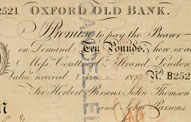 2521 OXFORD OLD BANK.
Promise to pay the Bearer
on Demand Ten Pounds, here or at
Messrs. Coutts Strand London
Value received No B252
For Herbert Parsons, John Thomson
and John Parsons